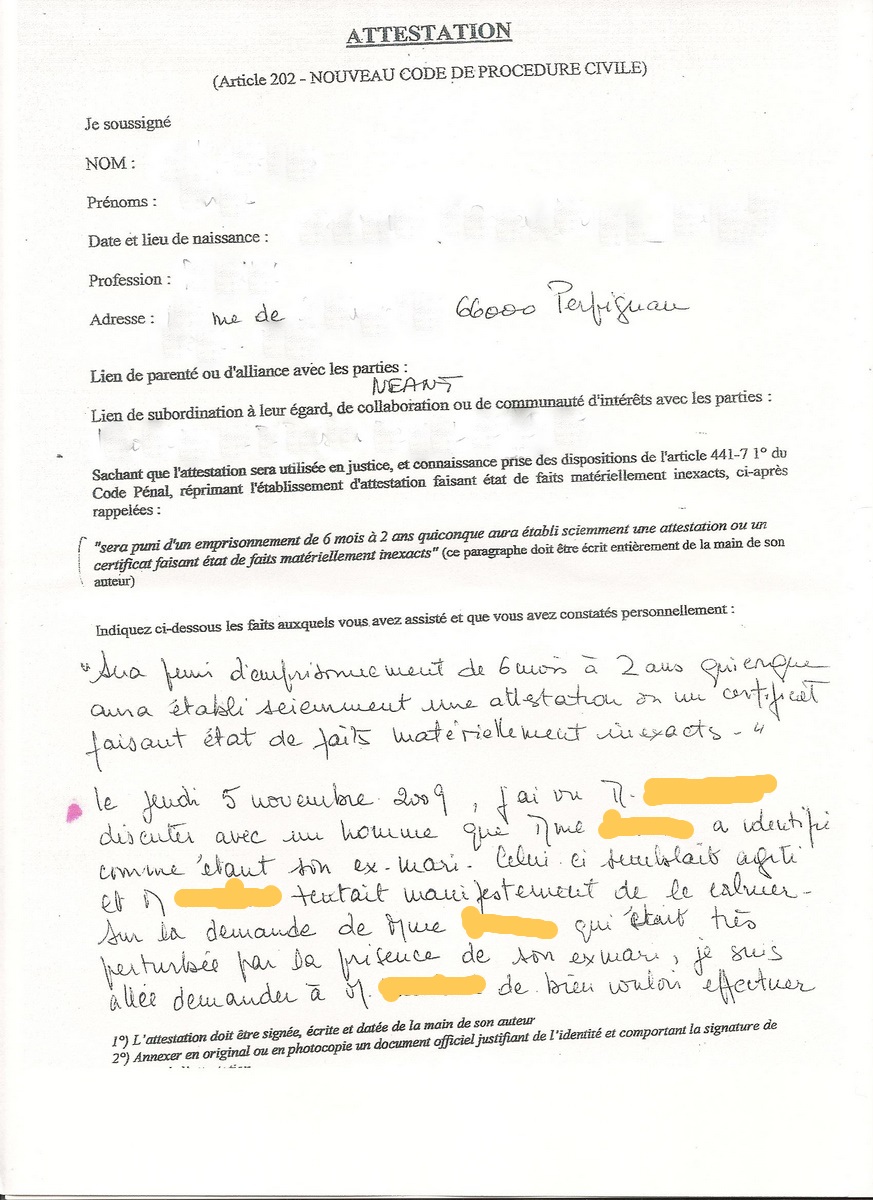 ATTESTATION
(Article 202 - NOUVEAU CODE DE PROCEDURE CIVILE)
Je soussigné
NOM :
Prénoms :
Date et lieu de naissance :
Profession :
Adresse : rue de 66000 Perpignan
Lien de parenté ou d'alliance avec les parties :
NEANT
Lien de subordination à leur égard, de collaboration ou de communauté d'intérêts avec les parties :
Sachant que l'attestation sera utilisée en justice, et connaissance prise des dispositions de l'article 441-7 1° du
Code Pénal, réprimant l'établissement d'attestation faisant état de faits matériellement inexacts, ci-après
rappelées :
"sera puni d'un emprisonnement de 6 mois à 2 ans quiconque aura établi sciemment une attestation ou un
certificat faisant état de faits matériellement inexacts" (ce paragraphe doit être écrit entièrement de la main de son
auteur)
Indiquez ci-dessous les faits auxquels vous avez assisté et que vous avez constatés personnellement :
"Sera puni d'emprisonnement de 6 mois à 2 ans quiconque
aura établi sciemment une attestation ou un certificat
faisant état de faits matériellement inexacts - "
le jeudi 5 novembre 2009, j'ai vu M.
discuter avec un homme que Mme a identifié
comme étant son ex-mari. Celui ci semblait agité
et M tentait manifestement de le calmer -
Sur la demande de Mme qui était très
perturbée par la présence de son ex mari, je suis
allée demander à M. de bien vouloir effectuer
1°) L'attestation doit être signée, écrite et datée de la main de son auteur
2°) Annexer en original ou en photocopie un document officiel justifiant de l'identité et comportant la signature de